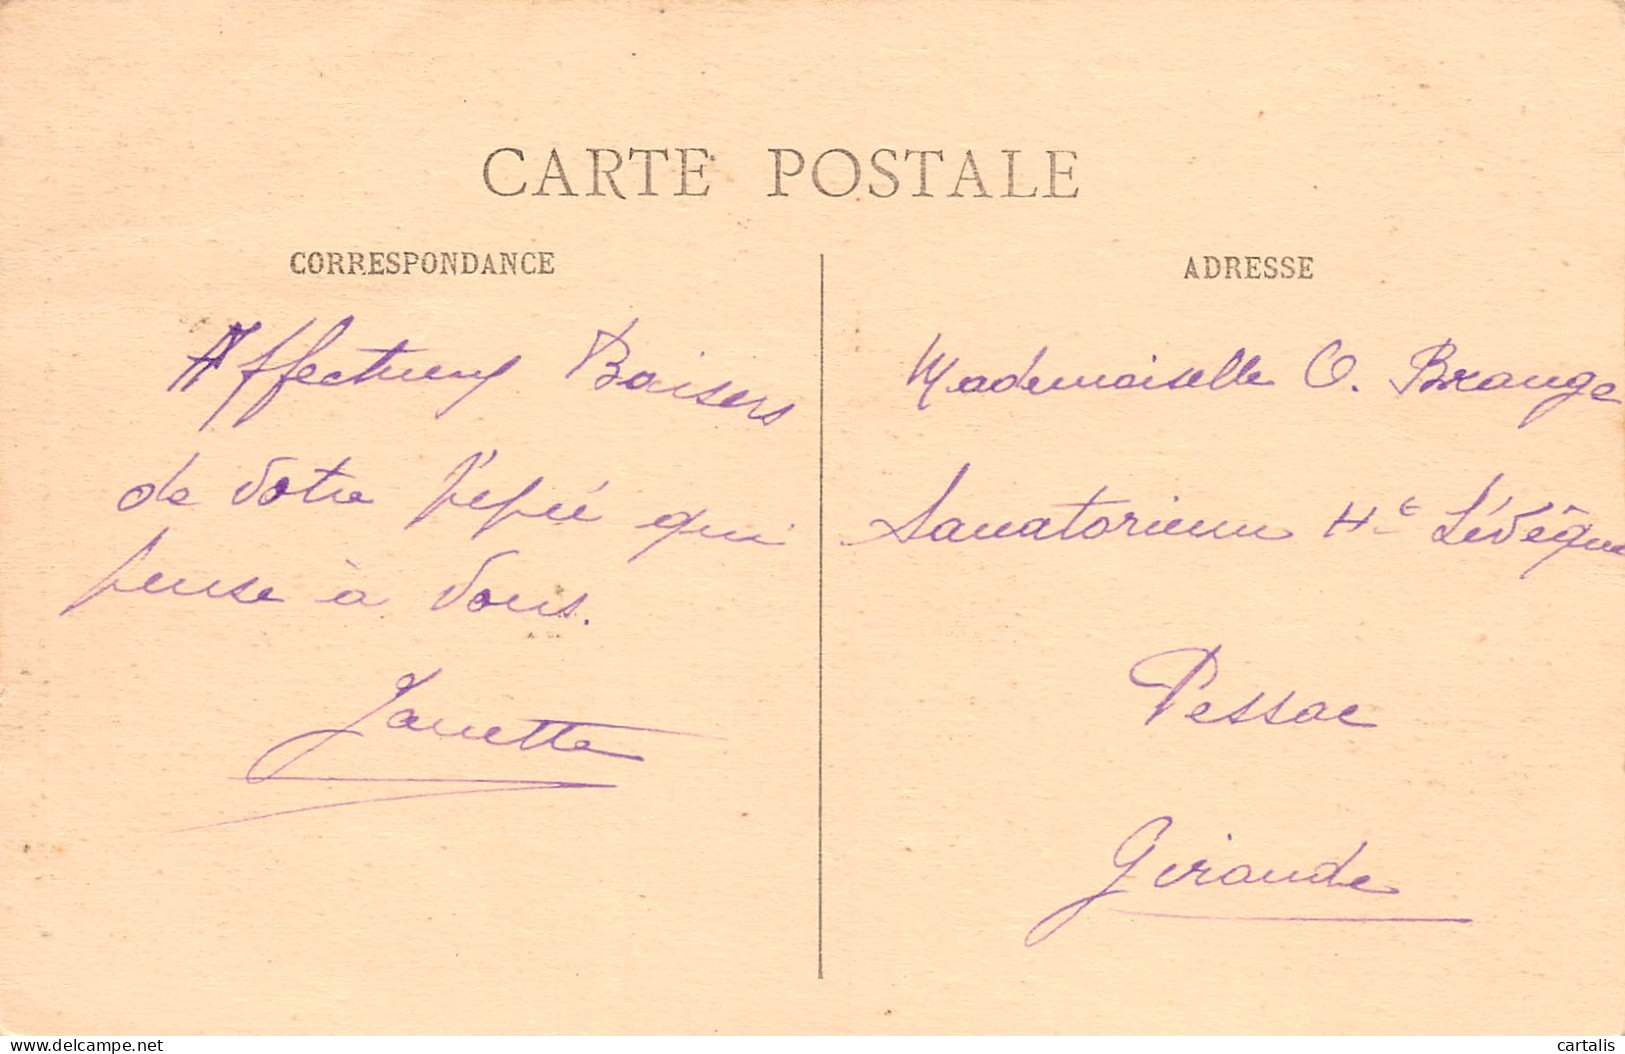 CARTE POSTALE
CORRESPONDANCE
Affectueux Baisers
de votre Pépée qui
pense à vous.
Janette
ADRESSE
Mademoiselle O. Brange
Sanatorium Ht Lévêque
Pessac
Gironde
delcampe.net
cartalis